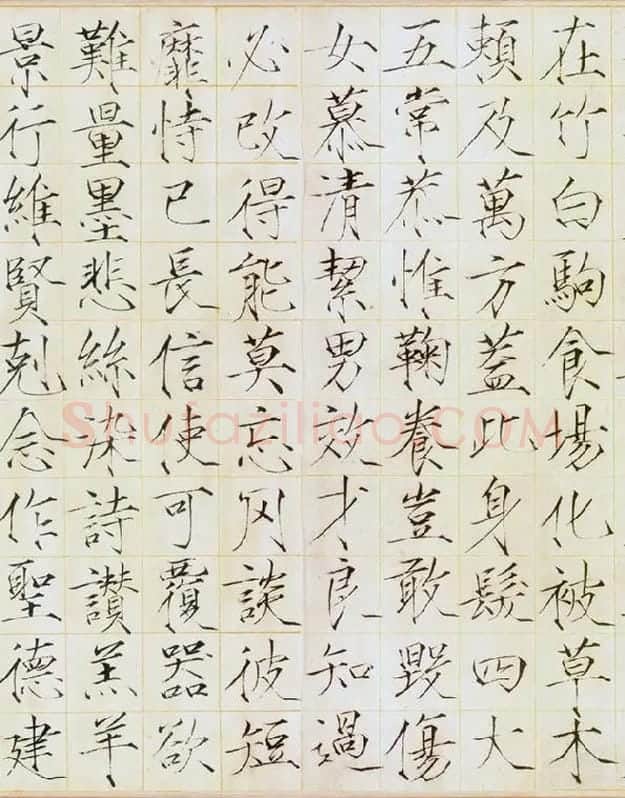 在竹白駒食場化被草木
頼及萬方蓋此身髮四大
五常恭惟鞠養豈敢毀傷
女慕清絜男效才良知過
必改得能莫忘罔談彼短
靡恃己長信使可覆器欲
難量墨悲絲染詩讃羔羊
景行維賢剋念作聖德建
Shufaziliao.COM